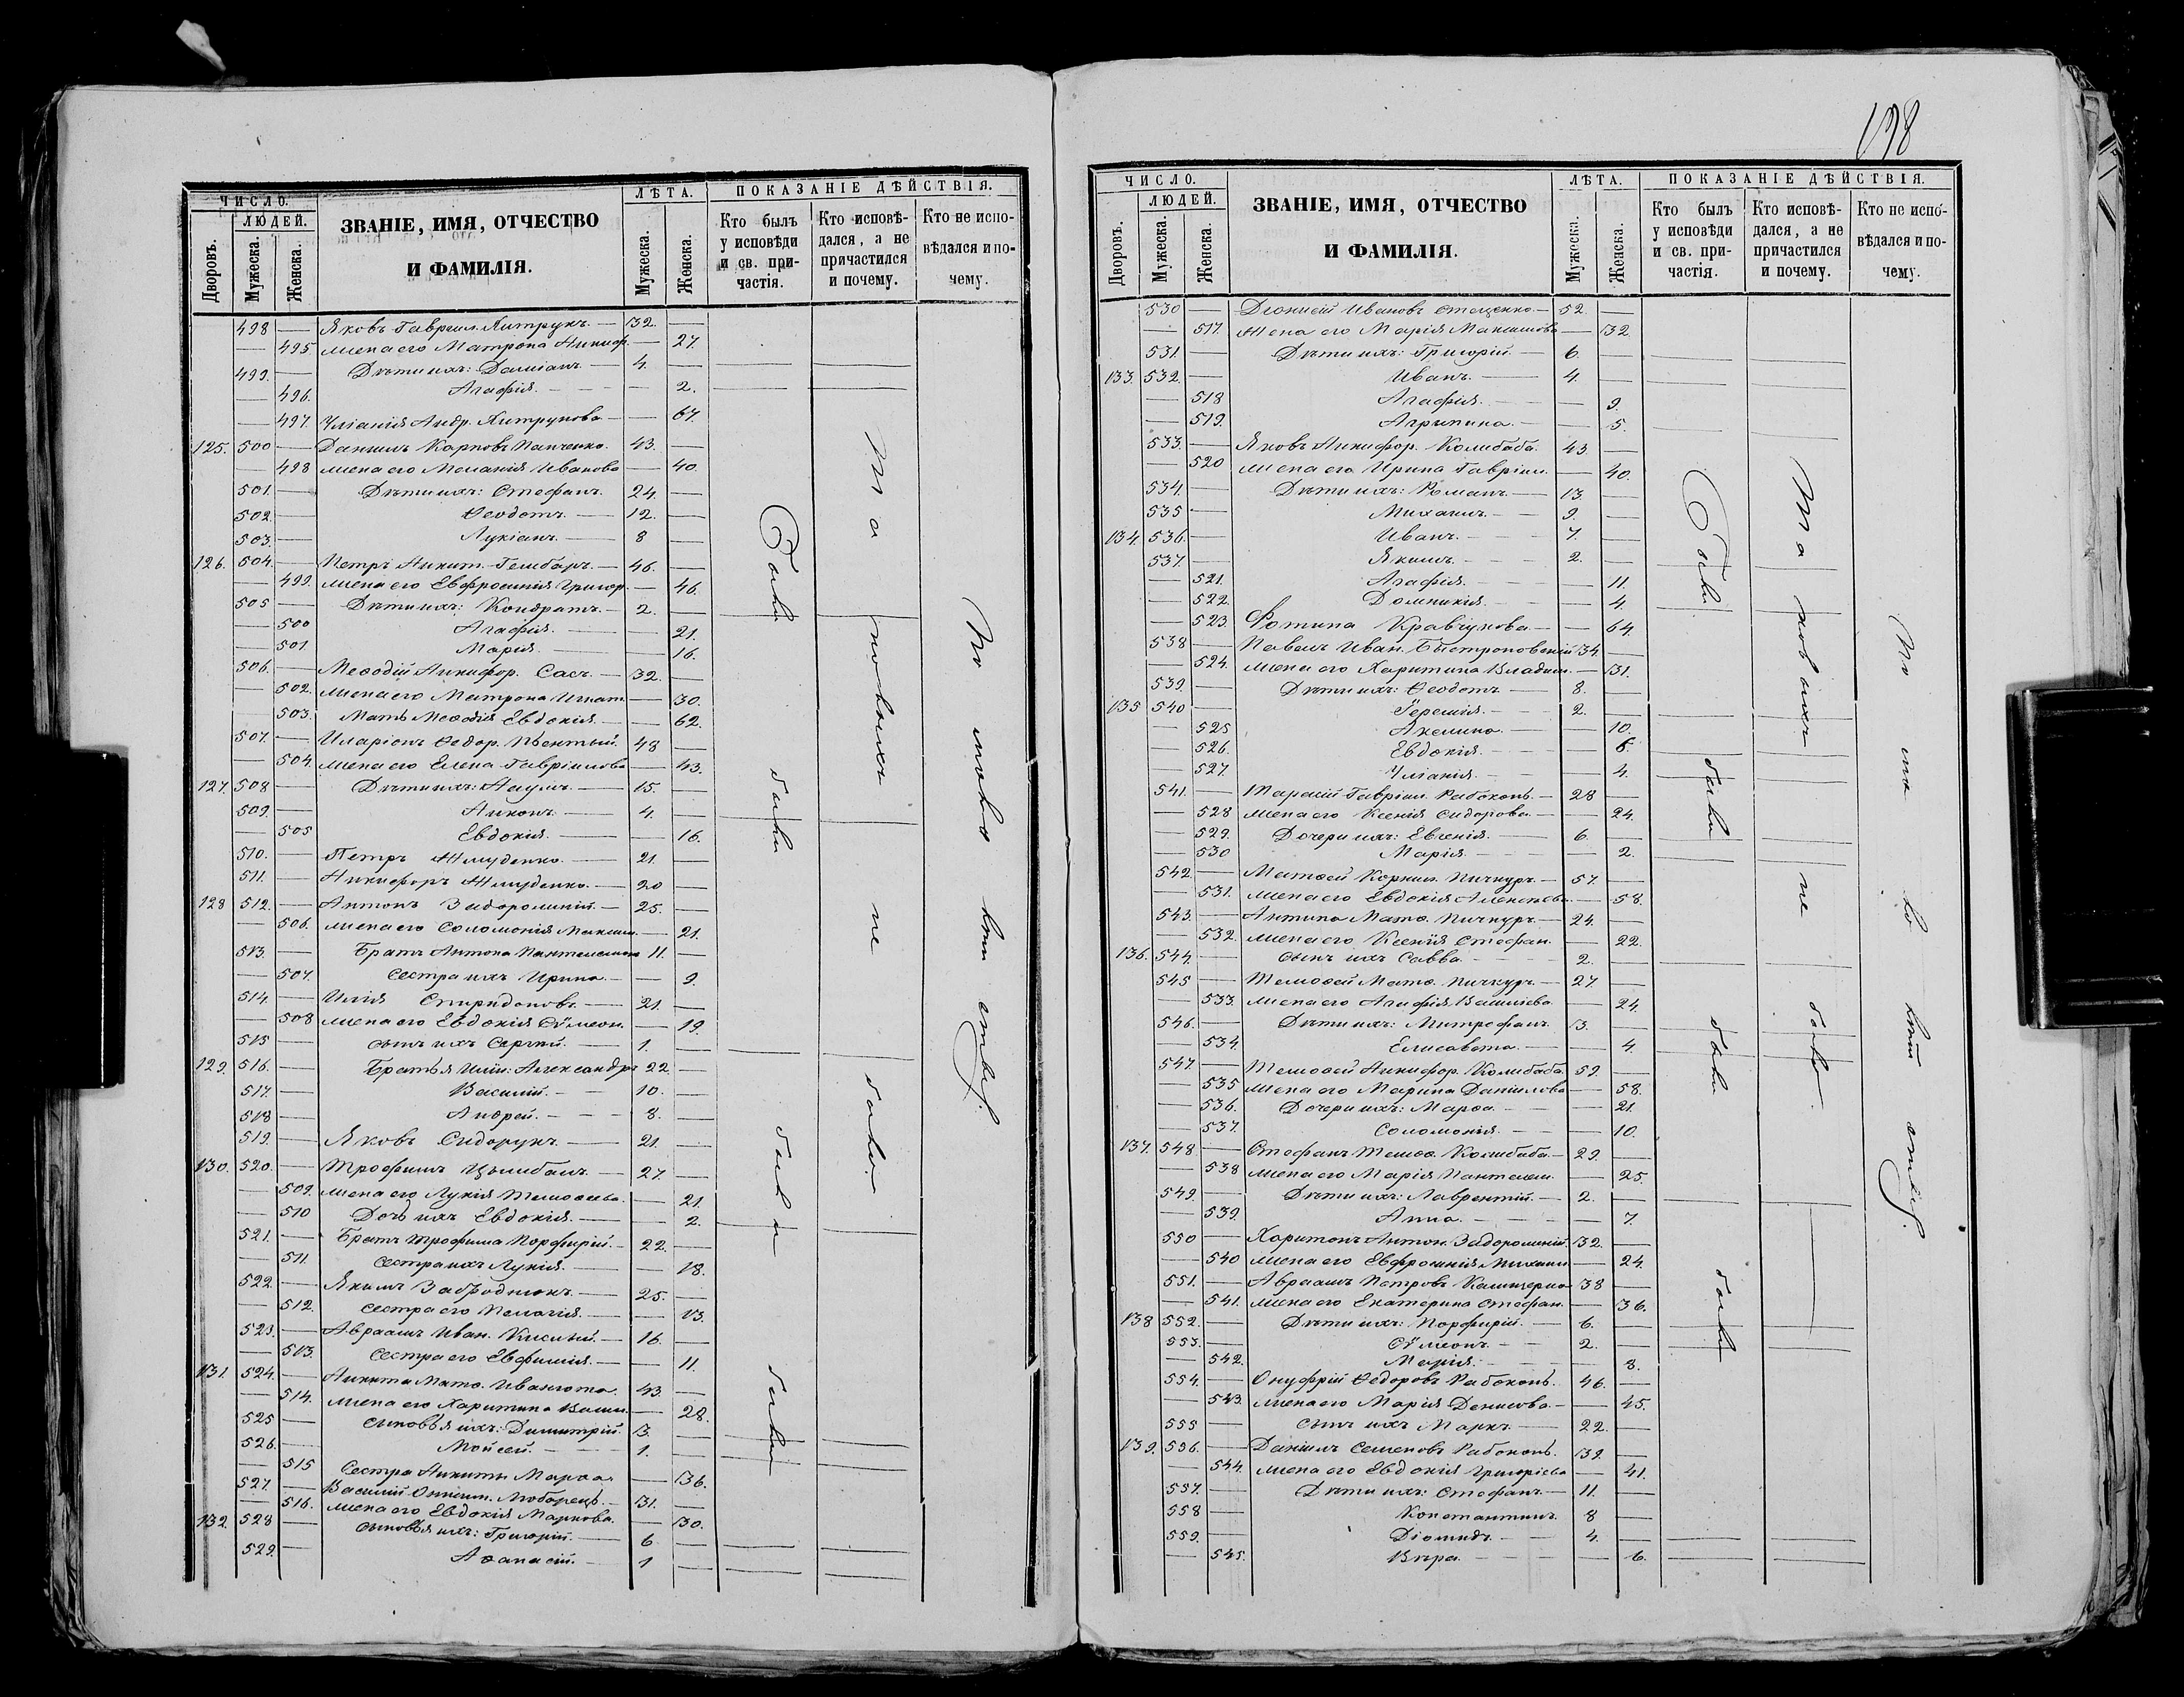 ЧИСЛО.
ЛЮДЕЙ.
Дворовъ.
Мужеска.
Женска.
ЗВАНІЕ, ИМЯ, ОТЧЕСТВО
И ФАМИЛІЯ.
ЛѢТА.
Мужеска.
Женска.
ПОКАЗАНІЕ ДѢЙСТВІЯ.
Кто былъ
у исповѣди
и св. при-
частія.
Кто исповѣ-
дался, а не
причастился
и почему.
Кто не испо-
вѣдался и по-
чему.
498 — Яковъ Гавріил. Хитрукъ. — 32. —
— 495 жена его Матрона Никиф. — 27.
499. — Дѣти ихъ: Даміанъ. — 4. —
— 496. Агафія. — 2.
— 497. Уліанія Андр. Хитрукова — 67.
125. 500 — Даніилъ Карповъ Панченко. 43. —
— 498 жена его Меланія Иванова — 40.
501. — Дѣти ихъ: Стефанъ. 24. —
502. — Ѳеодотъ. — 12. —
503. — Лукіанъ. — 8 —
126. 504. — Петръ Никит. Гембаръ. — 46. —
— 499. жена его Евфросинія Григор. — 46.
505 — Дѣти ихъ: Кондратъ. — 2. —
— 500 Агафія. — 21.
— 501. Марія. — 16.
506. — Меѳодій Никифор. Сасъ. — 32. —
— 502. жена его Матрона Игнат. — 30.
— 503. Мать Меѳодія Евдокія. — 62.
507. — Иларіонъ Ѳедор. 48 —
— 504. жена его Елена Гавріилова — 43.
127. 508 — Дѣти ихъ: Наумъ. — 15. —
509. — Никонъ. — 4. —
— 505 Евдокія. — 16.
510. — Петръ Жмуденко. — 21. —
511. — Никифоръ Жмуденко. — 20 —
128 512. — Антонъ Задорожній. — 25. —
— 506. жена его Соломонія Максим. — 21.
513. — Братъ Антона Пантелеимонъ 11. —
— 507. Сестра ихъ Ирина. — 9.
514. — Илія Спиридоновъ. — 21. —
— 508 жена его Евдокія Сѵмеон. — 19.
515 — сынъ ихъ Сергій. — 1. —
129. 516. — Братья Иліи: Александръ 22. —
517. — Василій. — 10. —
518 — Андрей. — 8. —
519. — Яковъ Сидорукъ. — 21. —
130. 520. — Трофимъ Цымбалъ. — 27. —
— 509. жена его Лукія Тимоѳеева. — 21.
— 510 Дочь ихъ Евдокія. — 2.
521. — Братъ Трофима Порфирій. — 22. —
— 511. Сестра ихъ Лукія. — 18.
522. — Якимъ Забродшокъ. — 25. —
— 512. Сестра его Пелагія. — 13.
523. — Авраамъ Иван. Кислый. — 16. —
— 513. Сестра его Евфимія. — 11.
131. 524. — Никита Матѳ. Иванюта. 43. —
— 514. жена его Харитина Васил. — 28.
525 — сыновья ихъ: Димитрій. 3. —
526. — Мойсей. — 1. —
— 515 Сестра Никиты Марѳа. — 36.
527. — Василій Любарецъ. — 31. —
— 516. жена его Евдокія Маркова. — 30.
132. 528 — сыновья ихъ: Григорій. — 6 —
529. — Аѳанасій. — 1 —
Собки
были
были
были
Таковыхъ не было.
По тому кни отвѣ.
198
ЧИСЛО.
ЛЮДЕЙ.
Дворовъ.
Мужеска.
Женска.
ЗВАНІЕ, ИМЯ, ОТЧЕСТВО
И ФАМИЛІЯ.
ЛѢТА.
Мужеска.
Женска.
ПОКАЗАНІЕ ДѢЙСТВІЯ.
Кто былъ
у исповѣди
и св. при-
частія.
Кто исповѣ-
дался, а не
причастился
и почему.
Кто не испо-
вѣдался и по-
чему.
530 — Діонисій Ивановъ Стеценко. — 52. —
— 517. Жена его Марія Максимова — 32.
531. — Дѣти ихъ: Григорій. — 6. —
133. 532. — Иванъ. — 4. —
— 518 Агафія. — 9.
— 519. Агрипина. — 5.
533. — Яковъ Никифор. Колибаба. 43 —
— 520 жена его Ирина Гавріил. — 40.
534. — Дѣти ихъ: Романъ. — 13. —
535 — Михаилъ. — 9. —
134. 536. — Иванъ. — 7. —
537. — Якимъ. — 2. —
— 521. Агафія. — 11.
— 522. Домникія. — 4.
— 523. Фотина Кравчукова. — 64.
538 — Павелъ Иван. Быстроповскій 34. —
— 524. жена его Харитина Владим. — 31.
539. — Дѣти ихъ: Ѳеодотъ — 8. —
135 540 — Іеремія. — 2. —
— 525 Акелина. — 10.
— 526. Евдокія. — 6.
— 527. Уліанія. — 4.
541. — Тарасій Гавріил. Рабоконь. — 28 —
— 528 жена его Ксенія Сидорова. — 24.
— 529. Дочери ихъ: Евгенія. — 6. —
— 530 Марія. — 2.
542. — Матѳей Корнил. Пичкуръ. — 57. —
— 531. жена его Евдокія Алексѣева. — 58.
543. — Антипа Матѳ. Пичкуръ. — 24. —
— 532. жена его Ксенія Стефан. — 22.
136. 544. — сынъ ихъ Савва. — 2. —
545 — Тимоѳей Матѳ. Пичкуръ. — 27. —
— 533. жена его Агафія Василіева — 24.
546. — Дѣти ихъ: Митрофанъ. 3. —
— 534. Елисавета. — 4.
547. — Тимоѳей Никифор. Колибаба 59. —
— 535 жена его Марина Даніилова — 58.
— 536. Дочери ихъ: Марѳа. — 21.
— 537. Соломонія. — 10.
137. 548 — Стефанъ Тимоѳ. Колибаба. — 29. —
— 538 жена его Марія Пантелеим. — 25.
549. — Дѣти ихъ: Лаврентій. — 2. —
— 539. Анна. — 7.
550 — Харитонъ Антон. Задорожній. 32. —
— 540 жена его Евфросинія Михаил. — 24.
551. — Авраамъ Петровъ 38 —
— 541. жена его Екатерина Стефан. — 36.
138 552. — Дѣти ихъ: Порфирій. — 6. —
553. — Сѵмеонъ. — 2. —
— 542. Марія. — 8.
554. — Онуфрій Ѳедоровъ Рабоконь. 46. —
— 543. жена его Марія Денисова. — 45.
555 — сынъ ихъ Маркъ. — 22. —
139. 556. — Даніилъ Семеновъ Рабоконь. 39. —
— 544. жена его Евдокія Григоріева — 41.
557. — Дѣти ихъ: Стефанъ. — 11. —
558 — Константинъ. 8 —
559. — Діомидъ. — 4. —
— 545. Вѣра. — 6.
были
были
были
Таковыхъ не было.